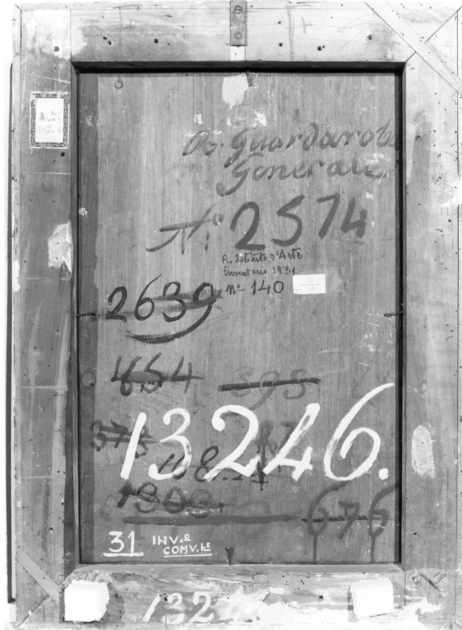 Guardaroba
Generale
Nº 2574
R. Istituto d'Arte
Inventario 1931
Nº 140
2639
654 395
374
13246.
1303
676
31 INV.º
COMV.LE
132